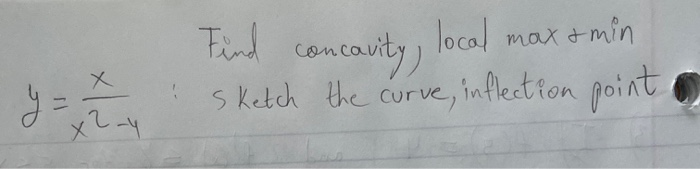 Find concavity, local max + min
y = x / x² - 4 : sketch the curve, inflection point